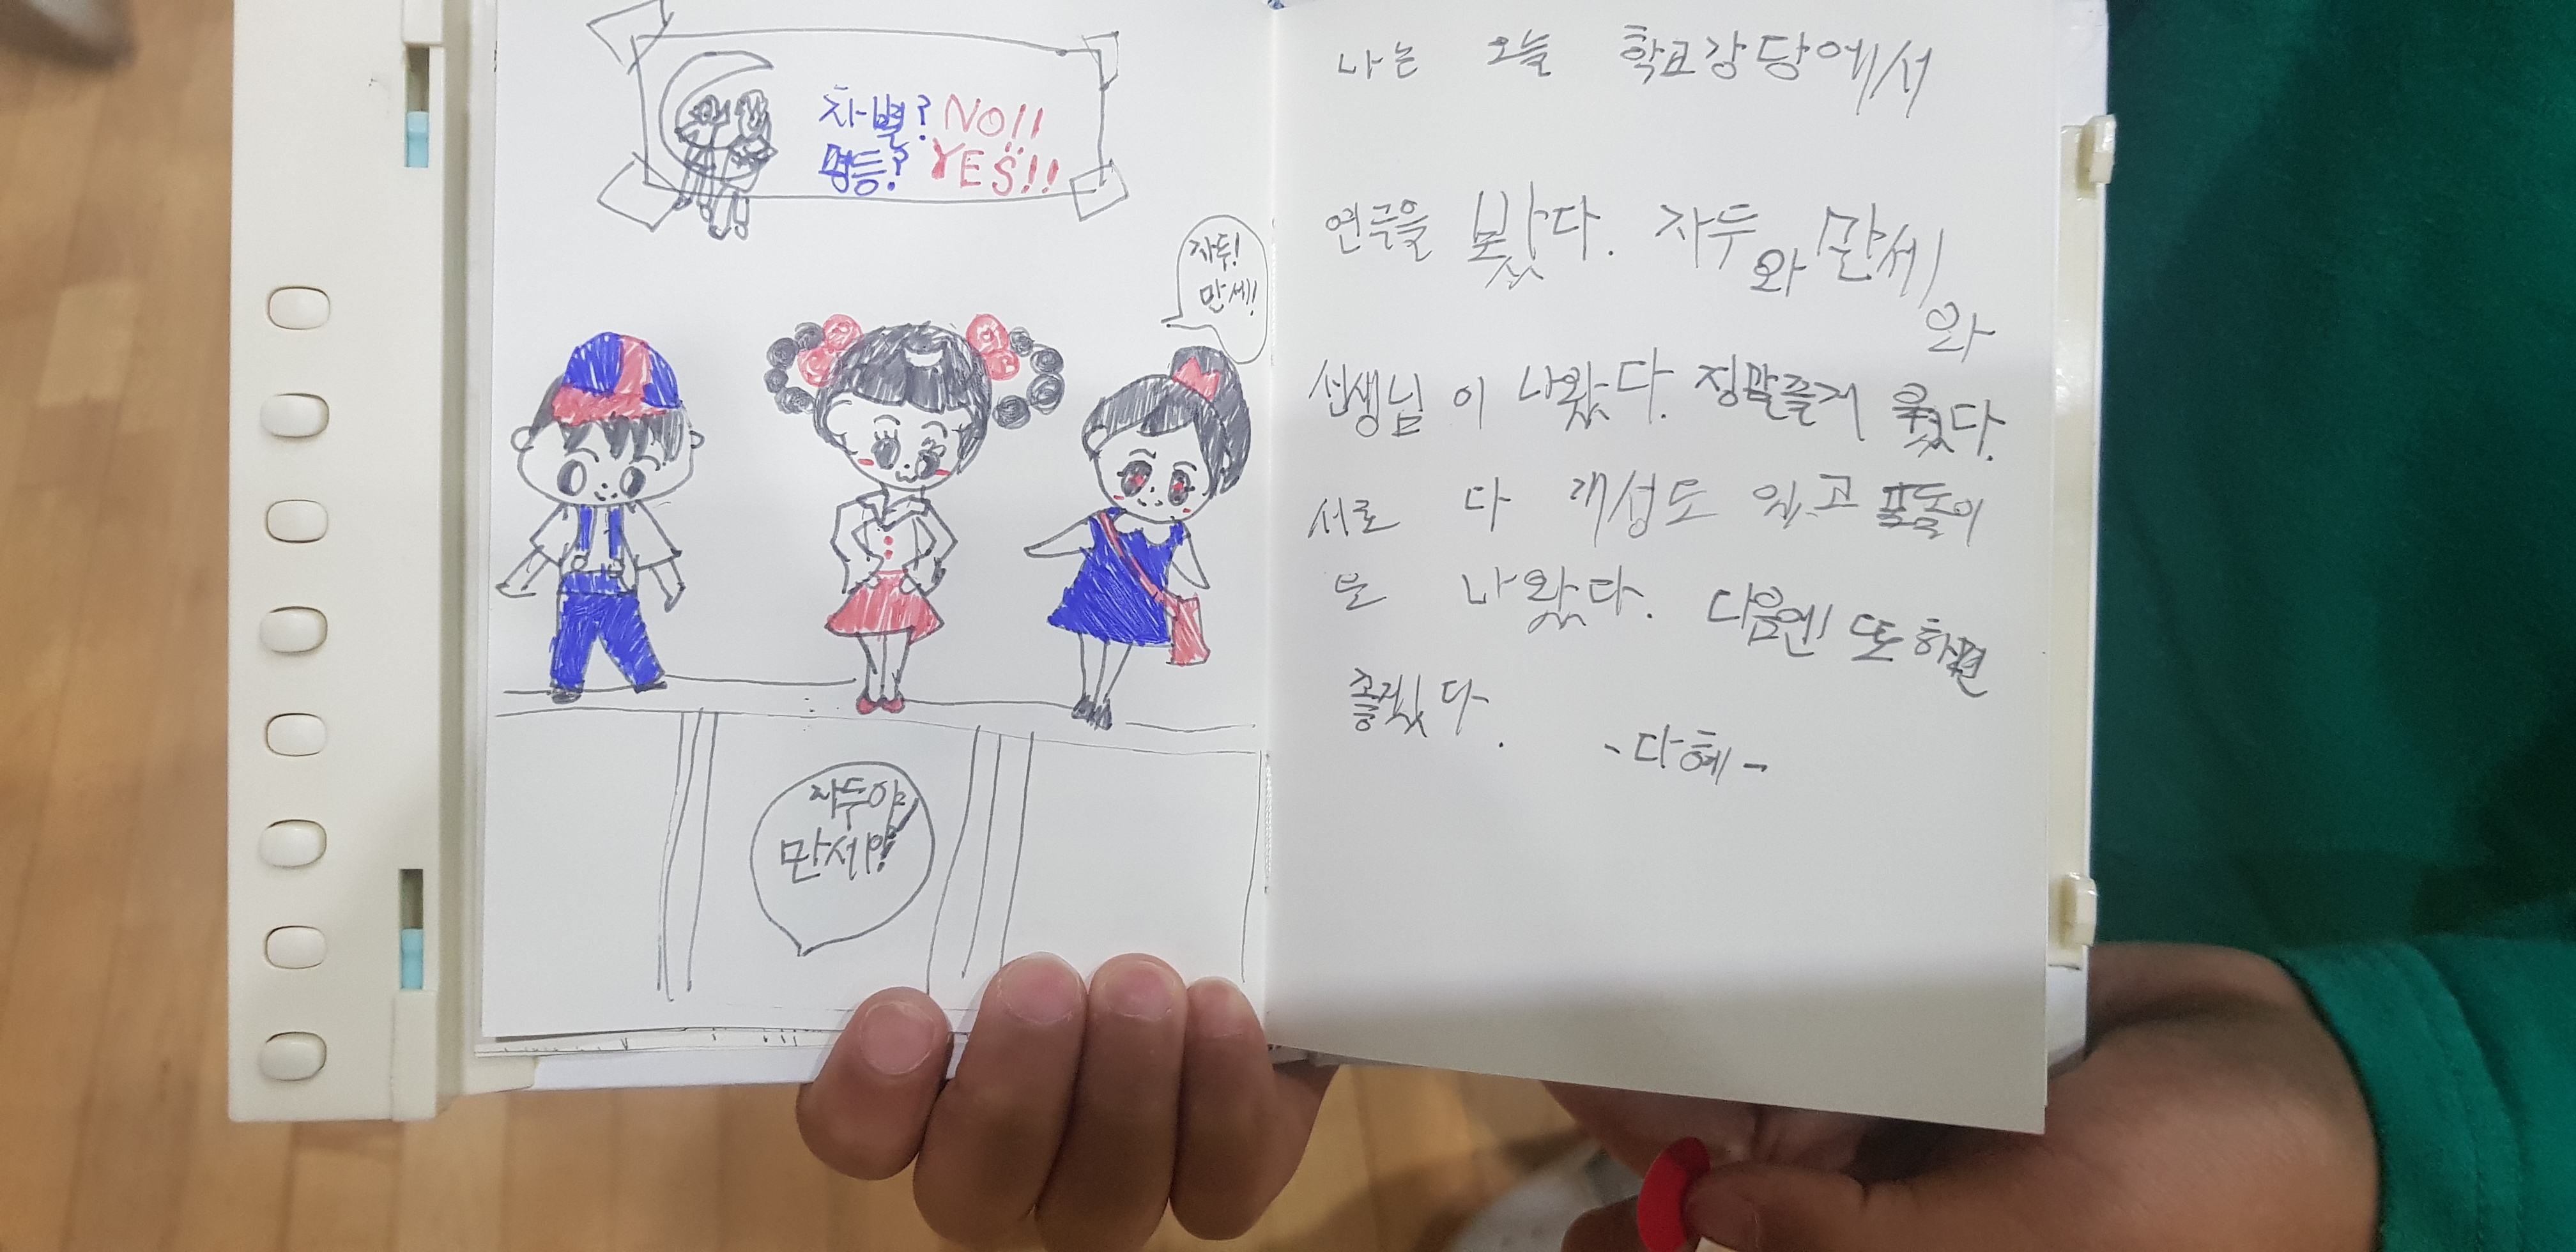 차별? NO!!
평등? YES!!
자두!
만세!
자두야
만세야!
나는 오늘 학교강당에서
연극을 봤다. 자두와 만세와
선생님이 나왔다. 정말즐거웠다.
서로 다 개성도 있고
도 나왔다. 다음엔 또 하면
좋겠다.
-다혜-